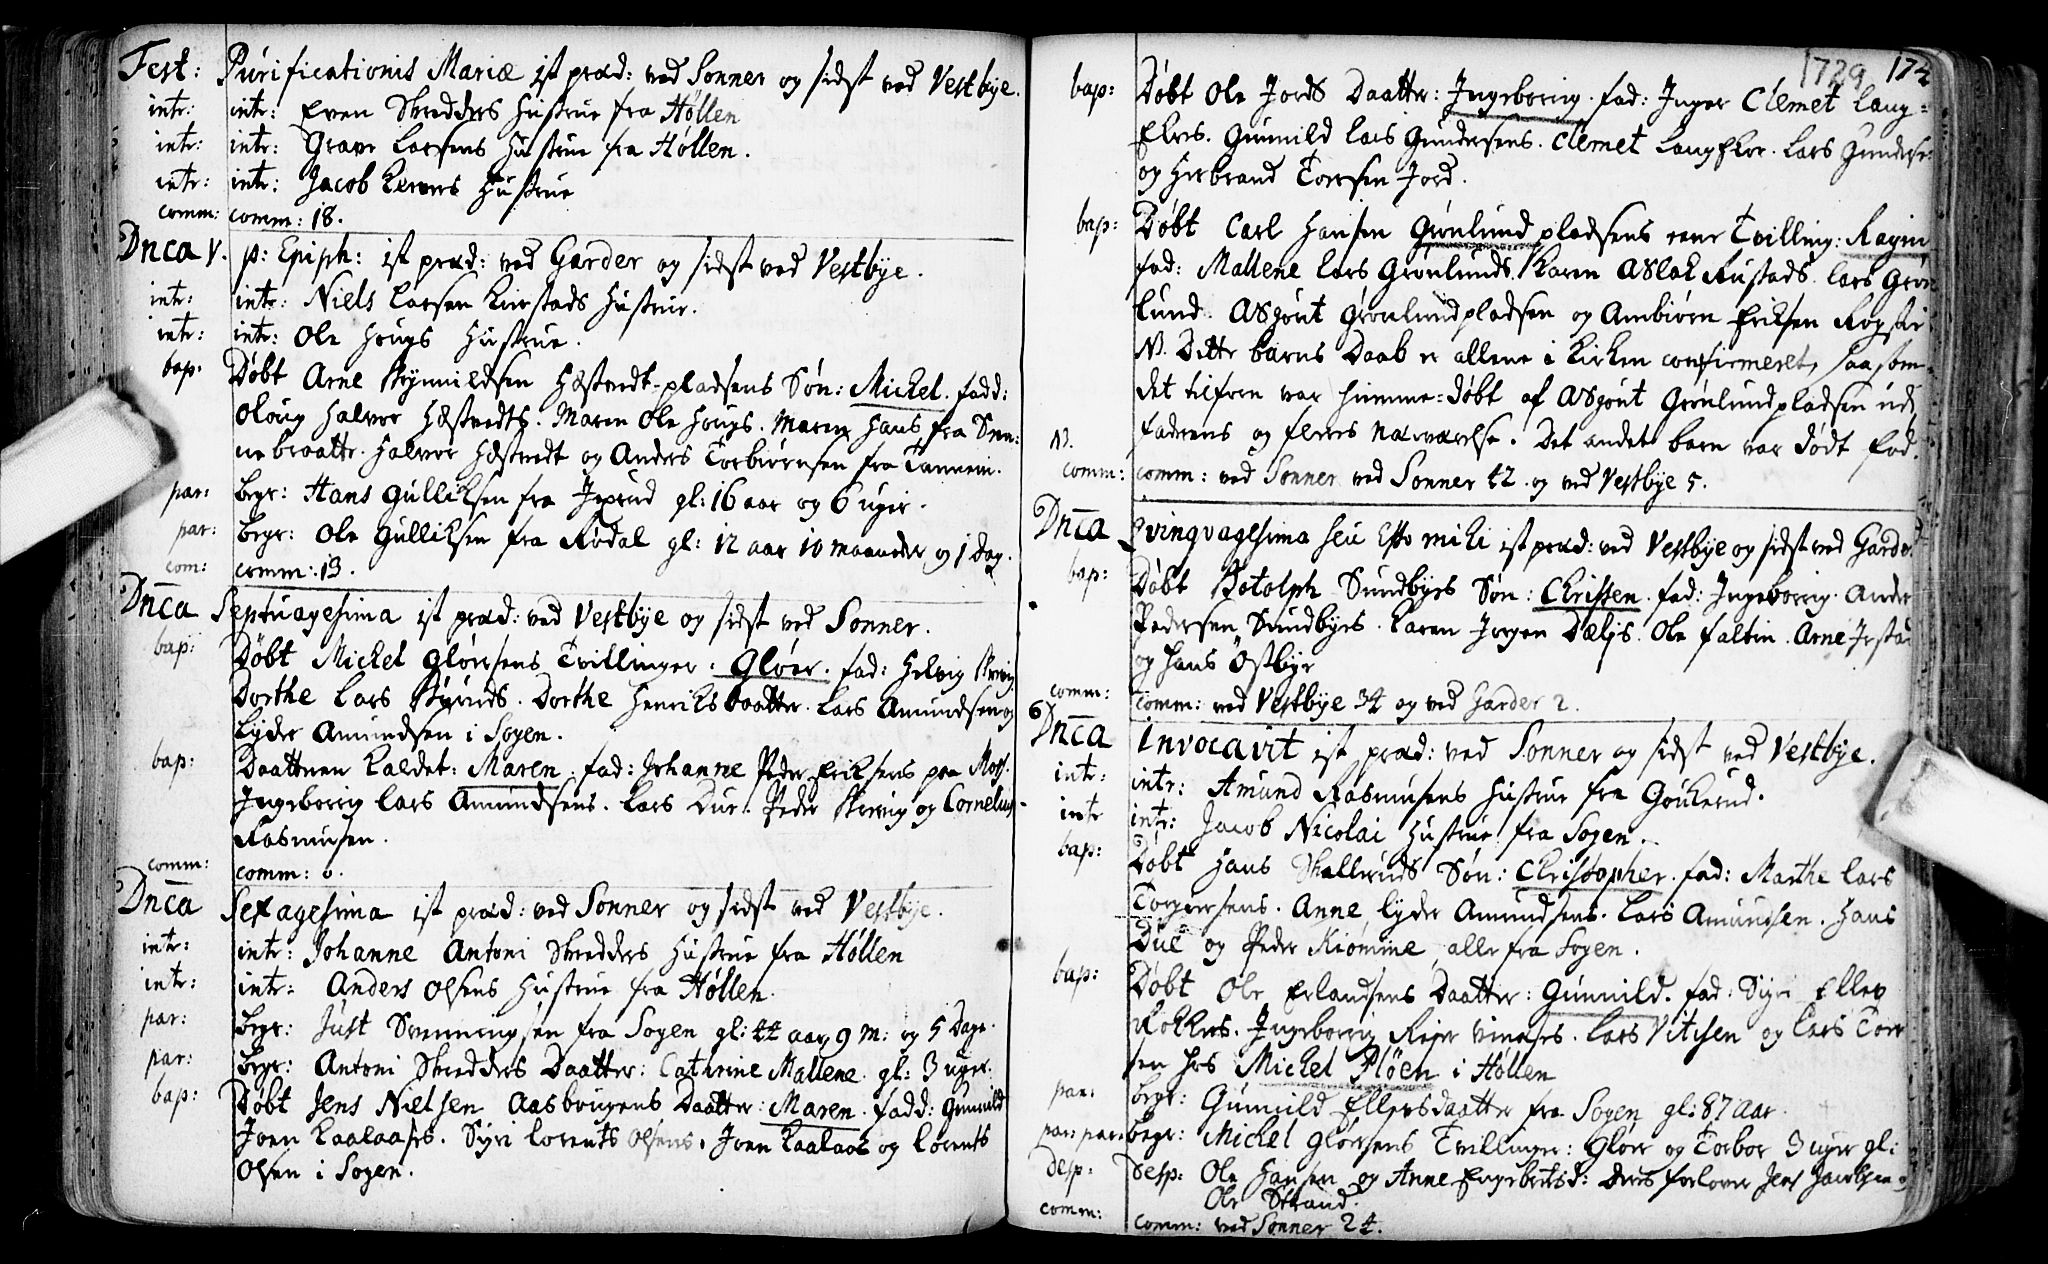 Fest: Purificationis Mariæ ist præd: ved Sonner og sidst ved Vestbye.
intr: intr: Even Skredders Hustrue fra Høllen
intr: intr: Grave Larsens Hustrue fra Høllen.
intr: intr: Jacob Hustrue
comm: comm: 18.
Dnca V. p: Epiph: ist præd: ved Garder og sidst ved Vestbye.
intr: intr: Niels Larsen Hustrue.
intr: intr: Ole Hougs Hustrue.
bap: Døbt Arne Brynnildsen Hæstvedt-pladsens Søn: Michel. fadd:
Oloug Halvor Hæstvedts. Maren Ole Hougs. Maren Hans fra
braatte. Halvor Hæstvedt og Anders Torbiørnsen fra
par: begr: Hans Gulliksen fra gl: 16 aar og 6 uger.
par: begr: Ole Gulliksen fra Rødal gl: 12 aar 10 maaneder og 1 dag.
com: comm: 13.
Dnca Septuagesima ist præd: ved Vestbye og sidst ved Sonner.
bap: Døbt Michel Gløersens Tvillinger: Gløer. fad: Helvig
Dorthe Lars Dorthe Henriksdaatter. Lars Amundsen og
Lyder Amundsen i Sogen.
bap: Daatteren kaldet: Maren. fad: Johanne Peder Eriksens paa Moss.
Ingeborrig Lars Amundsens. Lars Due. Peder og Cornelius
Rasmusen.
comm: comm: 0.
Dnca Sexagesima ist præd: ved Sonner og sidst ved Vestbye.
intr: intr: Johanne Antoni Skredders Hustrue fra Høllen
intr: intr: Anders Olsens Hustrue fra Høllen.
par: begr: Just Svenningsen fra Sogen gl: 44 aar 9 m: og 5 Dage.
par: begr: Antoni Skredders Daatter: Cathrine Mallene. gl: 3 uger.
bap: Døbt Jens Nielsen Aasbrugens Daatter: Maren. fadd: Gunnild
Joen Kaalaases. Syri Lorents Olsens. Joen Kaalaas og Lorents
Olsen i Sogen.
1729 174
bap: Døbt Ole Jords Daatter: Ingeborrig. fad: Inger Clemet Laug-
Gunnild Lars Gundersens. Clemet Lars Gunderse
og Herbrand Toersen Jord.
bap: Døbt Carl Hansen Grønlundpladsens eene Tvilling: Ragne
fad: Mallene Lars Grønlunds. Karen Aslak Rustads. Lars Grøn
lund. Asgout Grønlundpladsen og Ambiørn Eriksen
N. Dette barns Daab er allene i Kirken confirmeret, saasom
det tilforn var hiemme-døbt af Asgout Grønlundpladsen udi
N. faderens og fleres nærværelse. Det andet barn var dødt fød.
comm: comm: ved Sonner ved Sonner 42 og ved Vestbye 5.
Dnca Qvinqvagesima seu Esto mihi ist præd: ved Vestbye og sidst ved Garder
bap: Døbt Botolph Sundbyes Søn: Christen. fad: Ingeborrig Ander
Pedersen Sundbyes. Karen Jørgen Dæljs. Ole Faltin. Arne
og Hans Østbye
comm: comm: ved Vestbye 34 og ved Garder 2.
6 Dnca Invocavit ist præd: ved Sonner og sidst ved Vestbye.
intr: intr: Amund Rasmusens Hustrue fra Goukerud.
intr intr: Jacob Nicolai Hustrue fra Sogen.
bap: Døbt Hans Skalleruds Søn: Christopher. fad: Marthe Lars
Torgersens. Anne Lyder Amundsens. Lars Amundsen. Hans
Due og Peder Kiømme alle fra Sogen.
bap: Døbt Ole Erlandsens Daatter: Gunnild. fad: Syri Ellev
Ingeborrig Lars Vitisen og Lars Toer
sen hos Michel Pløen i Høllen
par: begr: Gunnild Ellersdaatter fra Sogen gl: 87 aar.
par: par: begr: Michel Gløersens Tvillinger: Gløer og Torbor 3 uger gl:
desp: desp: Ole Hansen og Anne Engebretsd: Deres forlover Jens Jacobsen og
Ole Strand.
comm: comm: ved Sonner 24.